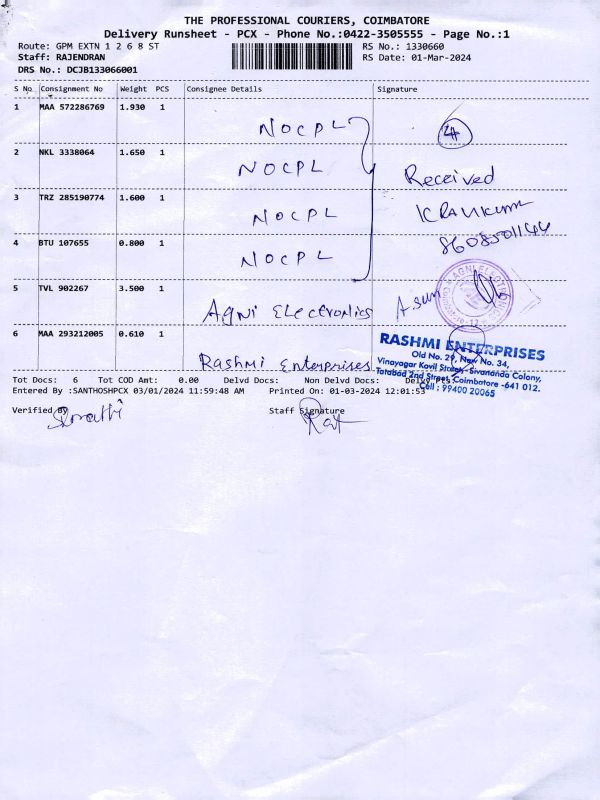 THE PROFESSIONAL COURIERS, COIMBATORE
Delivery Runsheet - PCX - Phone No.:0422-3505555 - Page No.:1
Route: GPM EXTN 1 2 6 8 ST RS No.: 1330660
Staff: RAJENDRAN RS Date: 01-Mar-2024
DRS No.: DCJB133066001
S No Consignment No Weight PCS Consignee Details Signature
1 MAA 572286769 1.930 1 NOCPL 4
2 NKL 3338064 1.650 1 NOCPL Received
3 TRZ 285190774 1.600 1 NOCPL
4 BTU 107655 0.800 1 NOCPL 8608501144
5 TVL 902267 3.500 1 Agni Electronics
6 MAA 293212005 0.610 1 Rashmi Enterprises
AGNI ELECTRONICS
RASHMI ENTERPRISES
Old No. 29, New No. 34,
Vinayagar Kovil Street, Sivananda Colony,
Tatabad 2nd Street, Coimbatore -641 012.
Cell : 99400 20065
Tot Docs: 6 Tot COD Amt: 0.00 Delvd Docs: Non Delvd Docs:
Entered By :SANTHOSHPCX 03/01/2024 11:59:48 AM Printed On: 01-03-2024 12:01:53
Verified By Staff Signature